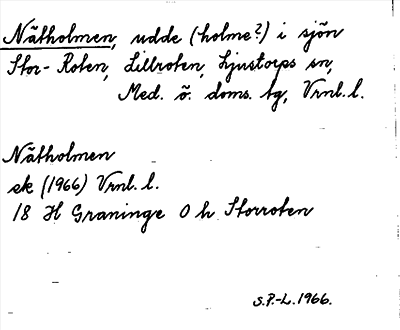 Nätholmen, udde (holme?) i sjön
Stor-Roten, Lillroten, Ljustorps sn,
Med. ö. doms. tg, Vrnl. l.
Nätholmen
ek (1966) Vrnl. l.
18 H Graninge 0 h Storroten
S.P.-L. 1966.